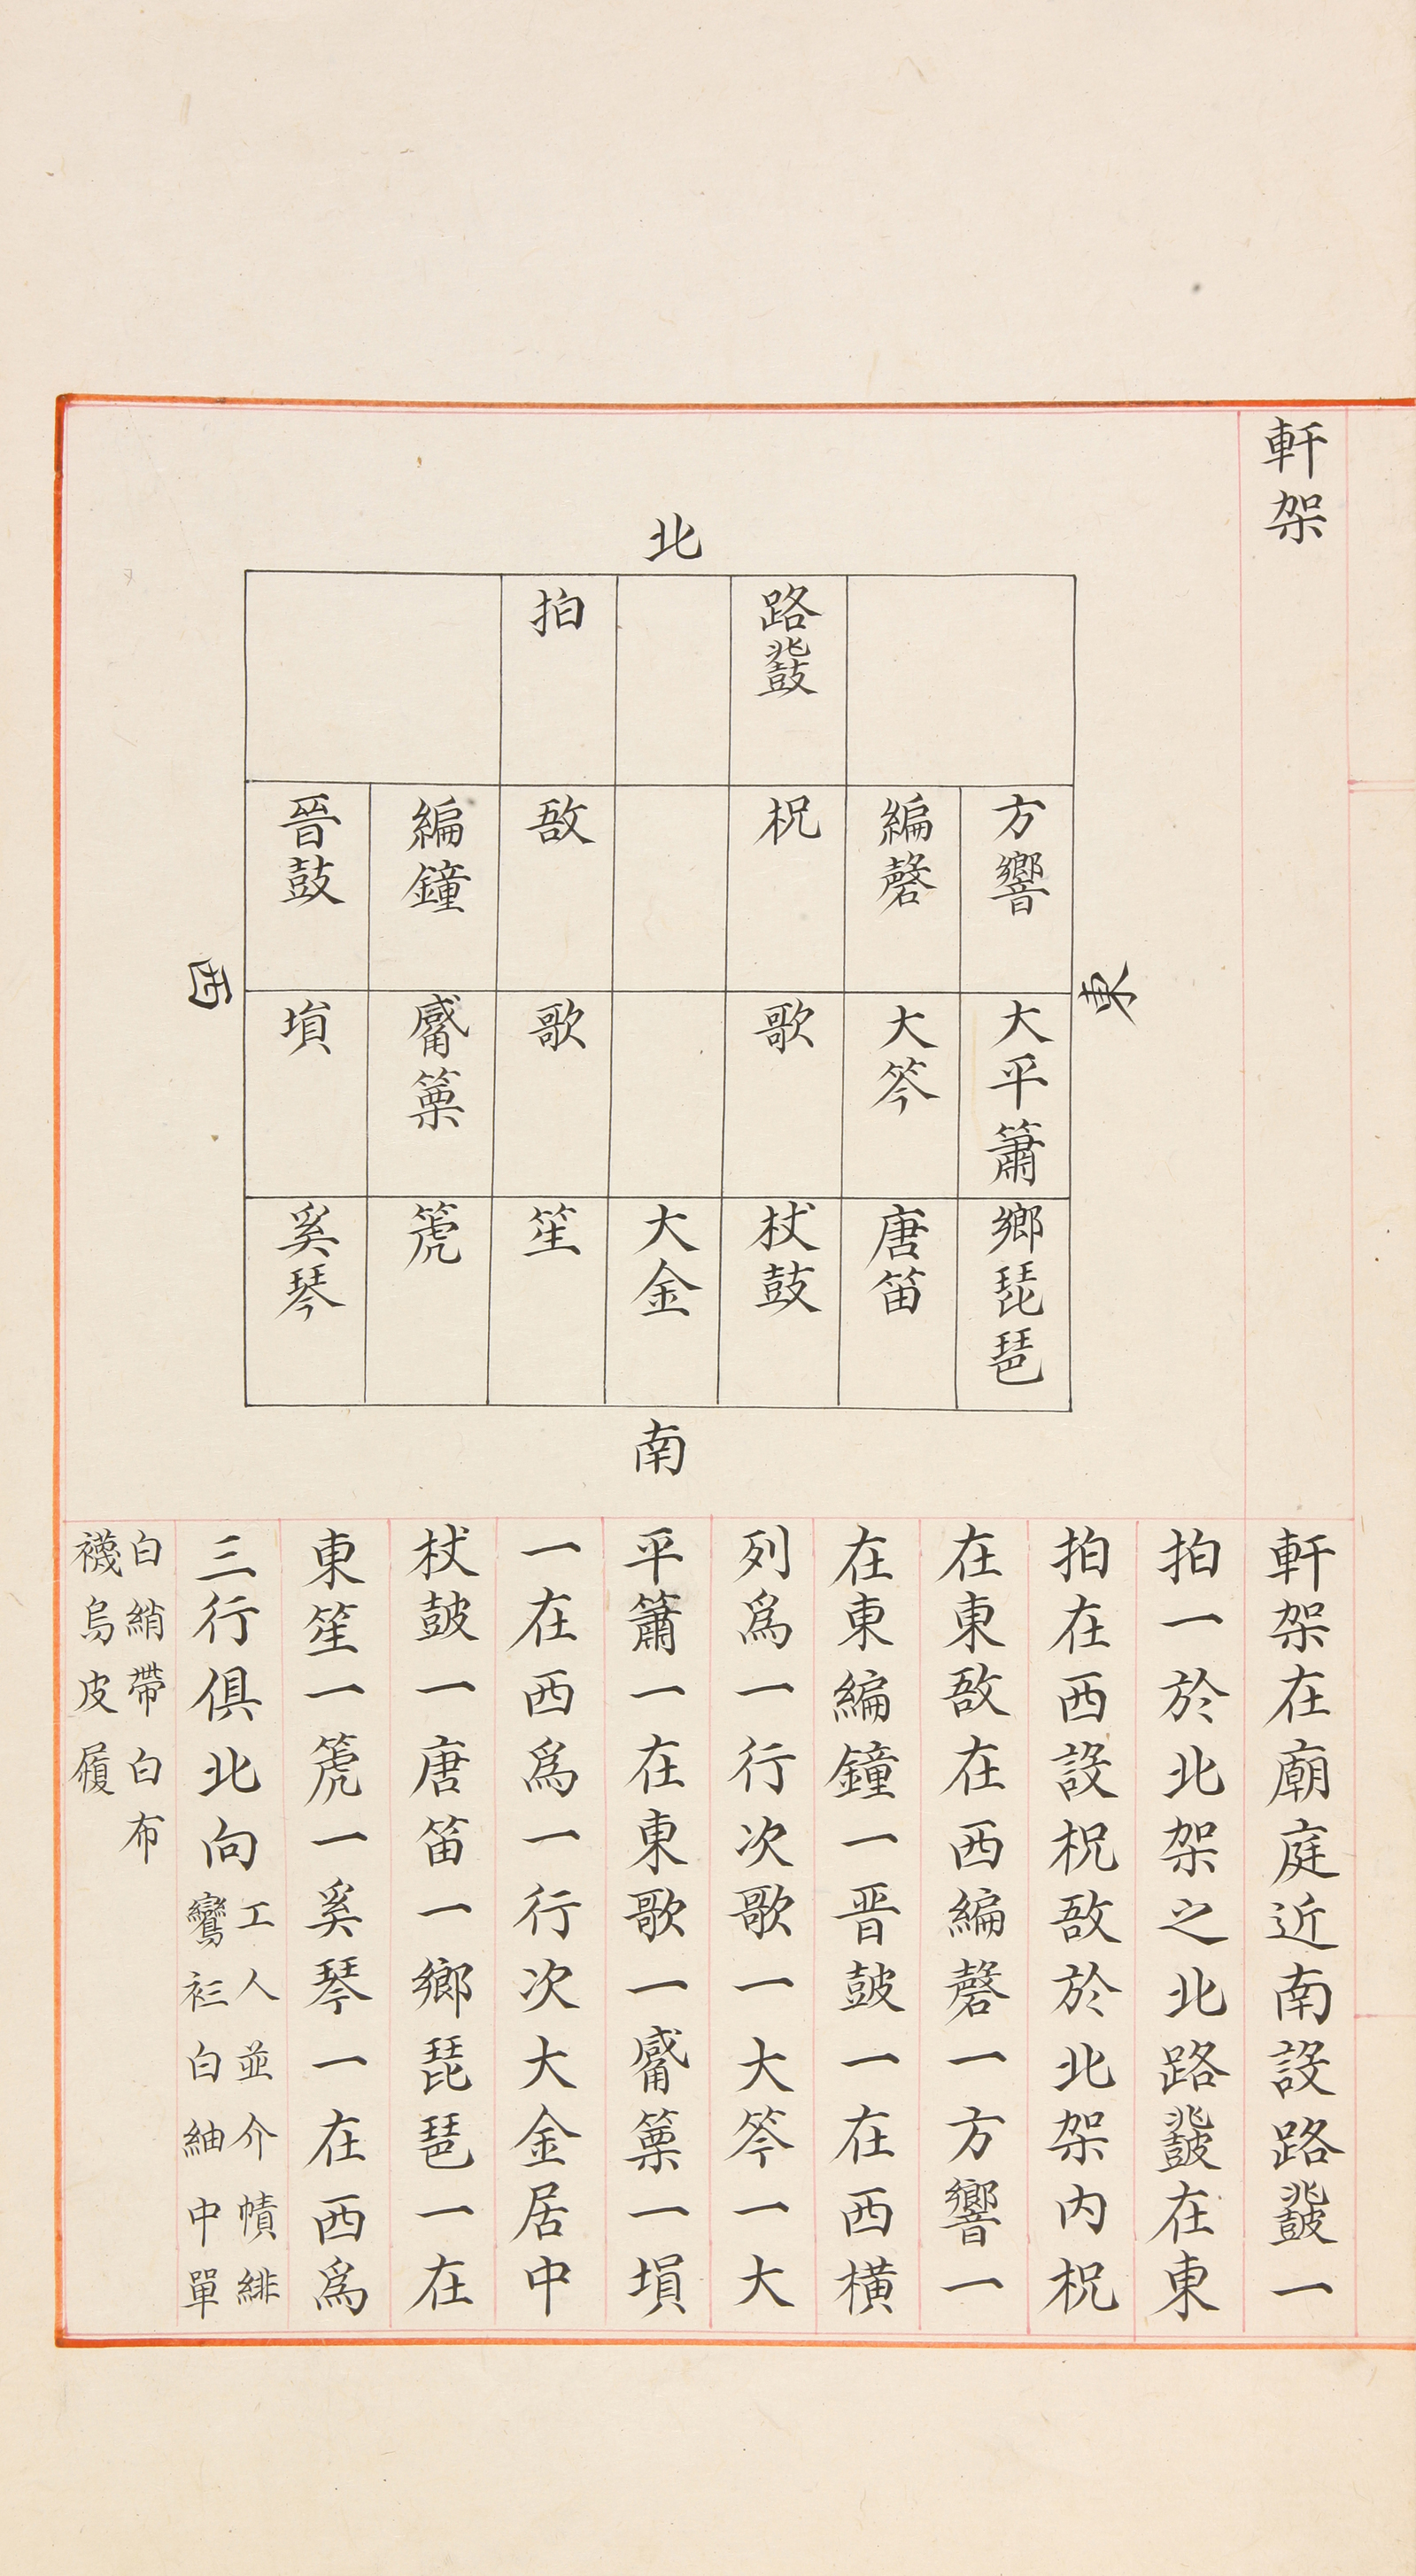 軒架
北
東
西
南
路鼗
拍
方響
編磬
柷
敔
編鐘
晉鼓
大平簫
大笒
歌
歌
觱篥
塤
鄉琵琶
唐笛
杖鼓
大金
笙
箎
奚琴
軒架在廟庭近南設路鼗一
拍一於北架之北路鼗在東
拍在西設柷敔於北架内柷
在東敔在西編磬一方響一
在東編鐘一晋皷一在西横
列爲一行次歌一大笒一大
平簫一在東歌一觱篥一塤
一在西爲一行次大金居中
杖皷一唐笛一鄉琵琶一在
東笙一箎一奚琴一在西爲
三行俱北向
工人並介幘緋
鸞衫白紬中單
白綃帶白布
襪烏皮履